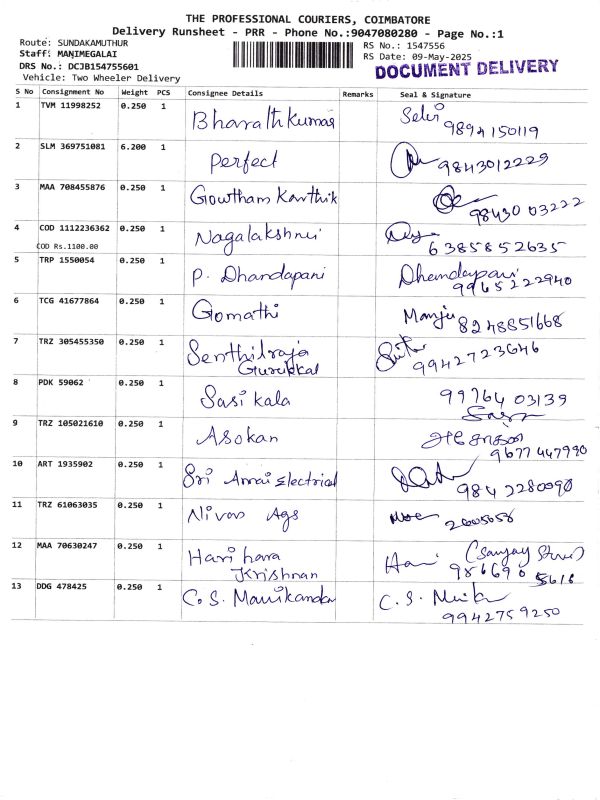 THE PROFESSIONAL COURIERS, COIMBATORE
Delivery Runsheet - PRR - Phone No.:9047080280 - Page No.:1
Route: SUNDAKAMUTHUR
RS No.: 1547556
Staff: MANIMEGALAI
RS Date: 09-May-2025
DRS No.: DCJB154755601
DOCUMENT DELIVERY
Vehicle: Two Wheeler Delivery
S No Consignment No Weight PCS Consignee Details Remarks Seal & Signature
1 TVM 11998252 0.250 1 Bharathkumar Selvi
9894150119
2 SLM 369751081 6.200 1 Perfect 9843012229
3 MAA 708455876 0.250 1 Gowtham Karthik
98430 03222
4 COD 1112236362 0.250 1 Nagalakshmi
COD Rs.1100.00 6385852635
5 TRP 1550054 0.250 1 P. Dhandapani Dhandapani
9965222940
6 TCG 41677864 0.250 1 Gomathi Manju 8248851668
7 TRZ 305455350 0.250 1 Senthilraja
Gurukkal 9942723646
8 PDK 59062 0.250 1 Sasikala 99764 03139
9 TRZ 105021610 0.250 1 Asokan அசோகன்
9677447990
10 ART 1935902 0.250 1 Sri Annai Electrical
9842280090
11 TRZ 61063035 0.250 1 Nivas Ags
12 MAA 70630247 0.250 1 Hari hara
Krishnan Hari
13 DDG 478425 0.250 1 C. S. Manikandan C. S.
9942759250